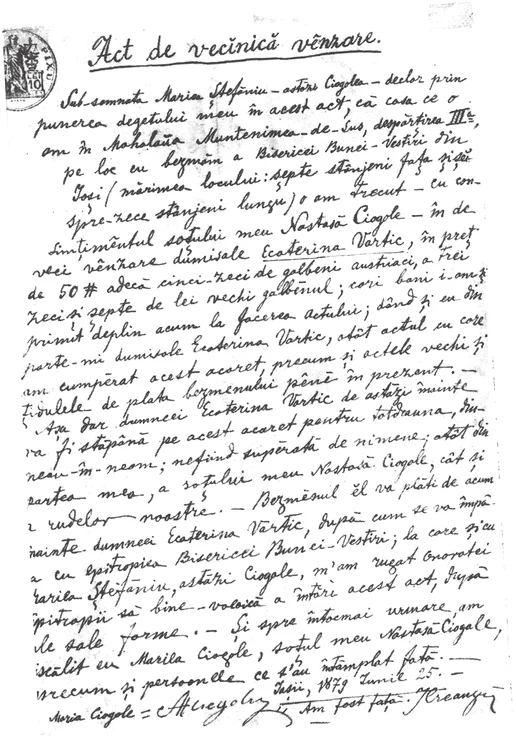 PIXU
LEI
10
Act de vecĭnică vênzare.
Sub-semnata Maria Ștefăniu - astăzi Ciogolea - declar prin
punerea degetului meu în acest act, că casa ce o
am în Mahalaŭa Muntenimea-de-Sus, despărțirea IIIª,
pe loc cu bezmăn a Bisericei Bunei-Vestiri din
Iași (mărimea locului: șepte stânjeni fața și șéi
spre-zece stânjeni lungu) o am trecut - cu con-
simțimêntul soțului meu Nastasă Ciogole - în de
veci vênzare dumisale Ecaterina Vartic, în preț
de 50 # adecă cinci-zeci de galbeni austriaci, a trei
zeci și șepte de lei vechi galbênul; cari bani i-am
primit deplin acum la facerea actului; dând și eu din
parte-mi dumisale Ecaterina Vartic, atât actul cu care
am cumpărat acest acaret, precum și actele vechi și
țidulele de plata bezmenului pênĕ în prezent. —
Așa dar dumneei Ecaterina Vartic de astăzi înainte
va fi stăpână pe acest acaret pentru totdauna, din
neam-în-neam; nefiind supĕrată de nimene; atât din
partea mea, a soțului meu Nastasă Ciogole, cât și
a rudelor noastre. — Bezmênul îl va plăti de acum
nainte dumneei Ecaterina Vartic, după cum se va împă
a cu epitropiea Bisericei Bunei-Vestiri; la care și cu
Marila Ștefăniu, astăzi Ciogole, m'am rugat onoratei
pitropii să bine-voiască a întări acest act, după
le sale forme. — Și spre întocmai urmare, am
iscălit eu Marila Ciogole, soțul meu Nastasă Ciogole,
precum și persoanele ce s'au întâmplat față. —
Iașii, 1879 Iunie 25. —
Maria Ciogole =
Am fost față. I Creangă